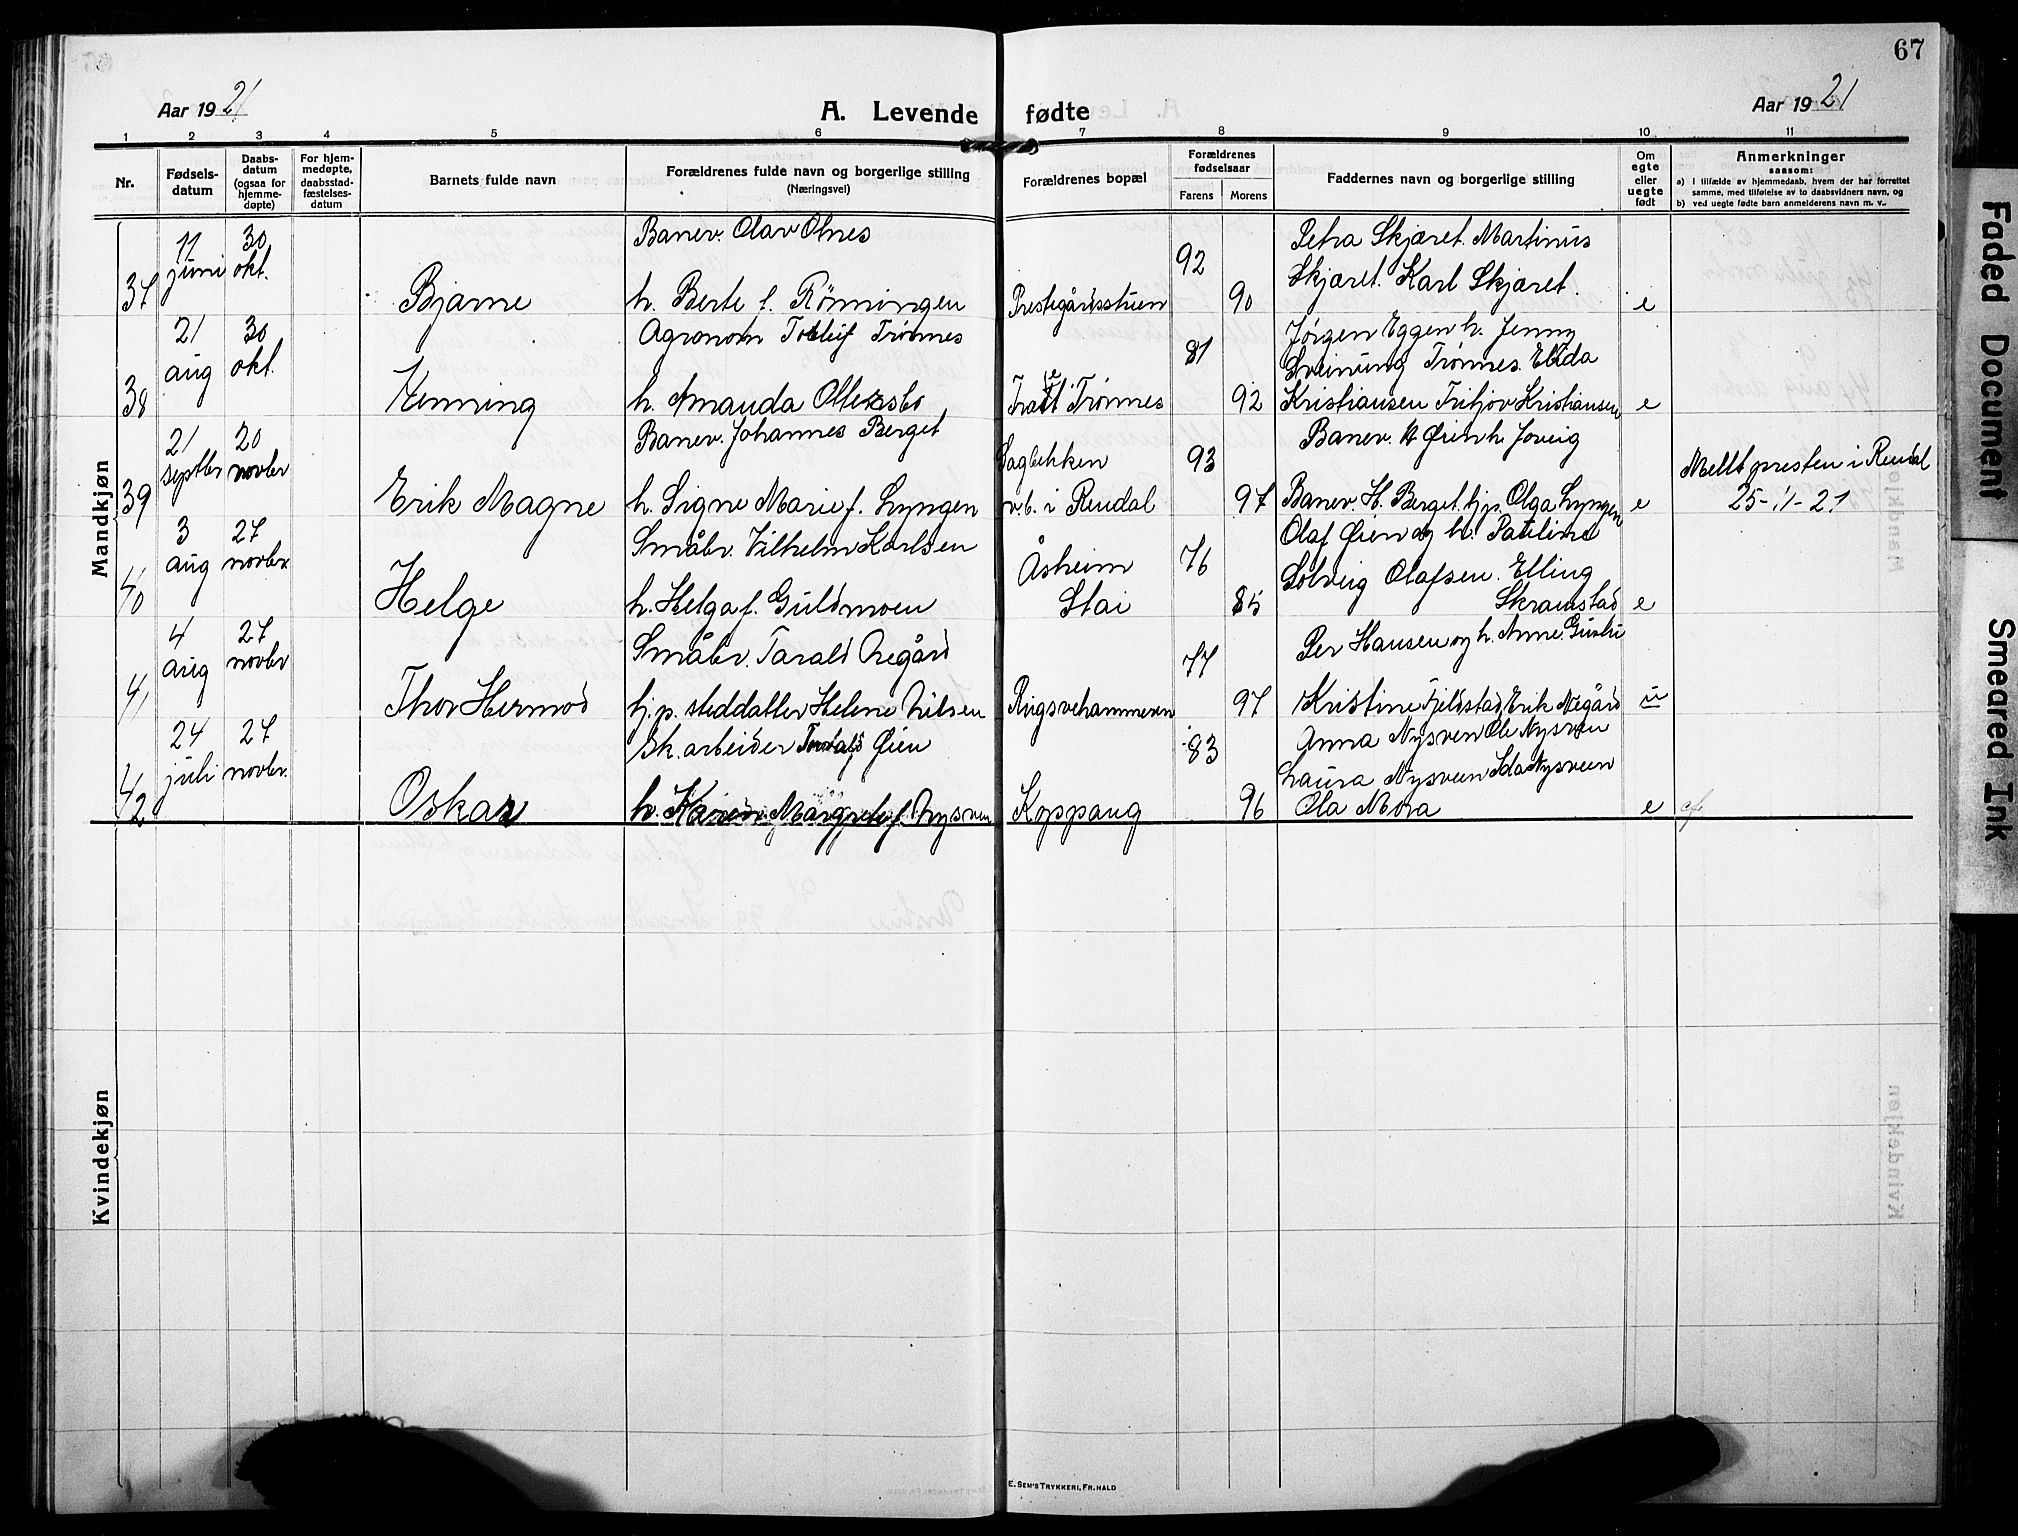 67
Aar 1921
A. Levende fødte
Aar 1921
1 2 3 4 5 6 7 8 9 10 11
Nr.
Fødsels-
datum
Daabs-
datum
(ogsaa for
hjemme-
døpte)
For hjem-
medøpte,
daabsstad-
fæstelses-
datum
Barnets fulde navn
Forældrenes fulde navn og borgerlige stilling
(Næringsvei)
Forældrenes bopæl
Forældrenes
fødselsaar
Farens Morens
Faddernes navn og borgerlige stilling
Om
egte
eller
uegte
født
Anmerkninger
saasom:
a) I tilfælde av hjemmedaab, hvem der har forrettet
samme, med tilføielse av to daabsvidners navn, og
b) ved uegte fødte barn anmelderens navn m. v..
Mandkjøn
11 30 Banev. Olav Olnes 92 Petra Skjæret. Martinus
juni okt. Skjæret. Karl Skjæret.
37 Bjarne h. Berte f. Rønningen Prestegårdsstuen 90 e
21 30 Agronom Tollef Trønnes 81 Jørgen Eggen h. Jenny
aug okt. Sveinung Trønnes. Elida
38 Henning h. Amanda Ottersbo Trønnes 92 Kristiansen Fritjov Kristiansen e
21 20 Banev. Johannes Berget Sagbekken 93 Banev. Øien h. Joveig
septbr novbr Meldt presten i Rendal
39 Erik Magne h. Signe Marie f. Lyngen v.b. i Rendal 97 Banev. H. Berget hjp. Olga Lyngen e 25-11-21
3 27 Småbr. Vilhelm Karlsen Åsheim 76 Olaf Øien og h. Pauline
aug novbr. Solveig Olafsen. Elling
40 Helge h. Helga f. Guldmoen Stai 85 Skramstad e
4 27 Småbr. Tarald Negård 77 Per Hansen og h. Anne.
aug novbr.
41 Thor Hermod hj.p. steddatter Helene Nilsen Ringsvehammeren 97 Kristine Fjeldstad, Erik Negård u
24 27 Sk. arbeider Øien 83 Anna Nysven Ole Nysven
juli novbr. Laura Nysveen Ida Nysveen
42 Oskar h. Margrete f. Nysven Koppang 96 Ola Mora e
Kvindekjøn
E. SEM'S TRYKKERI, FR.HALD
Faded Document
Smeared Ink